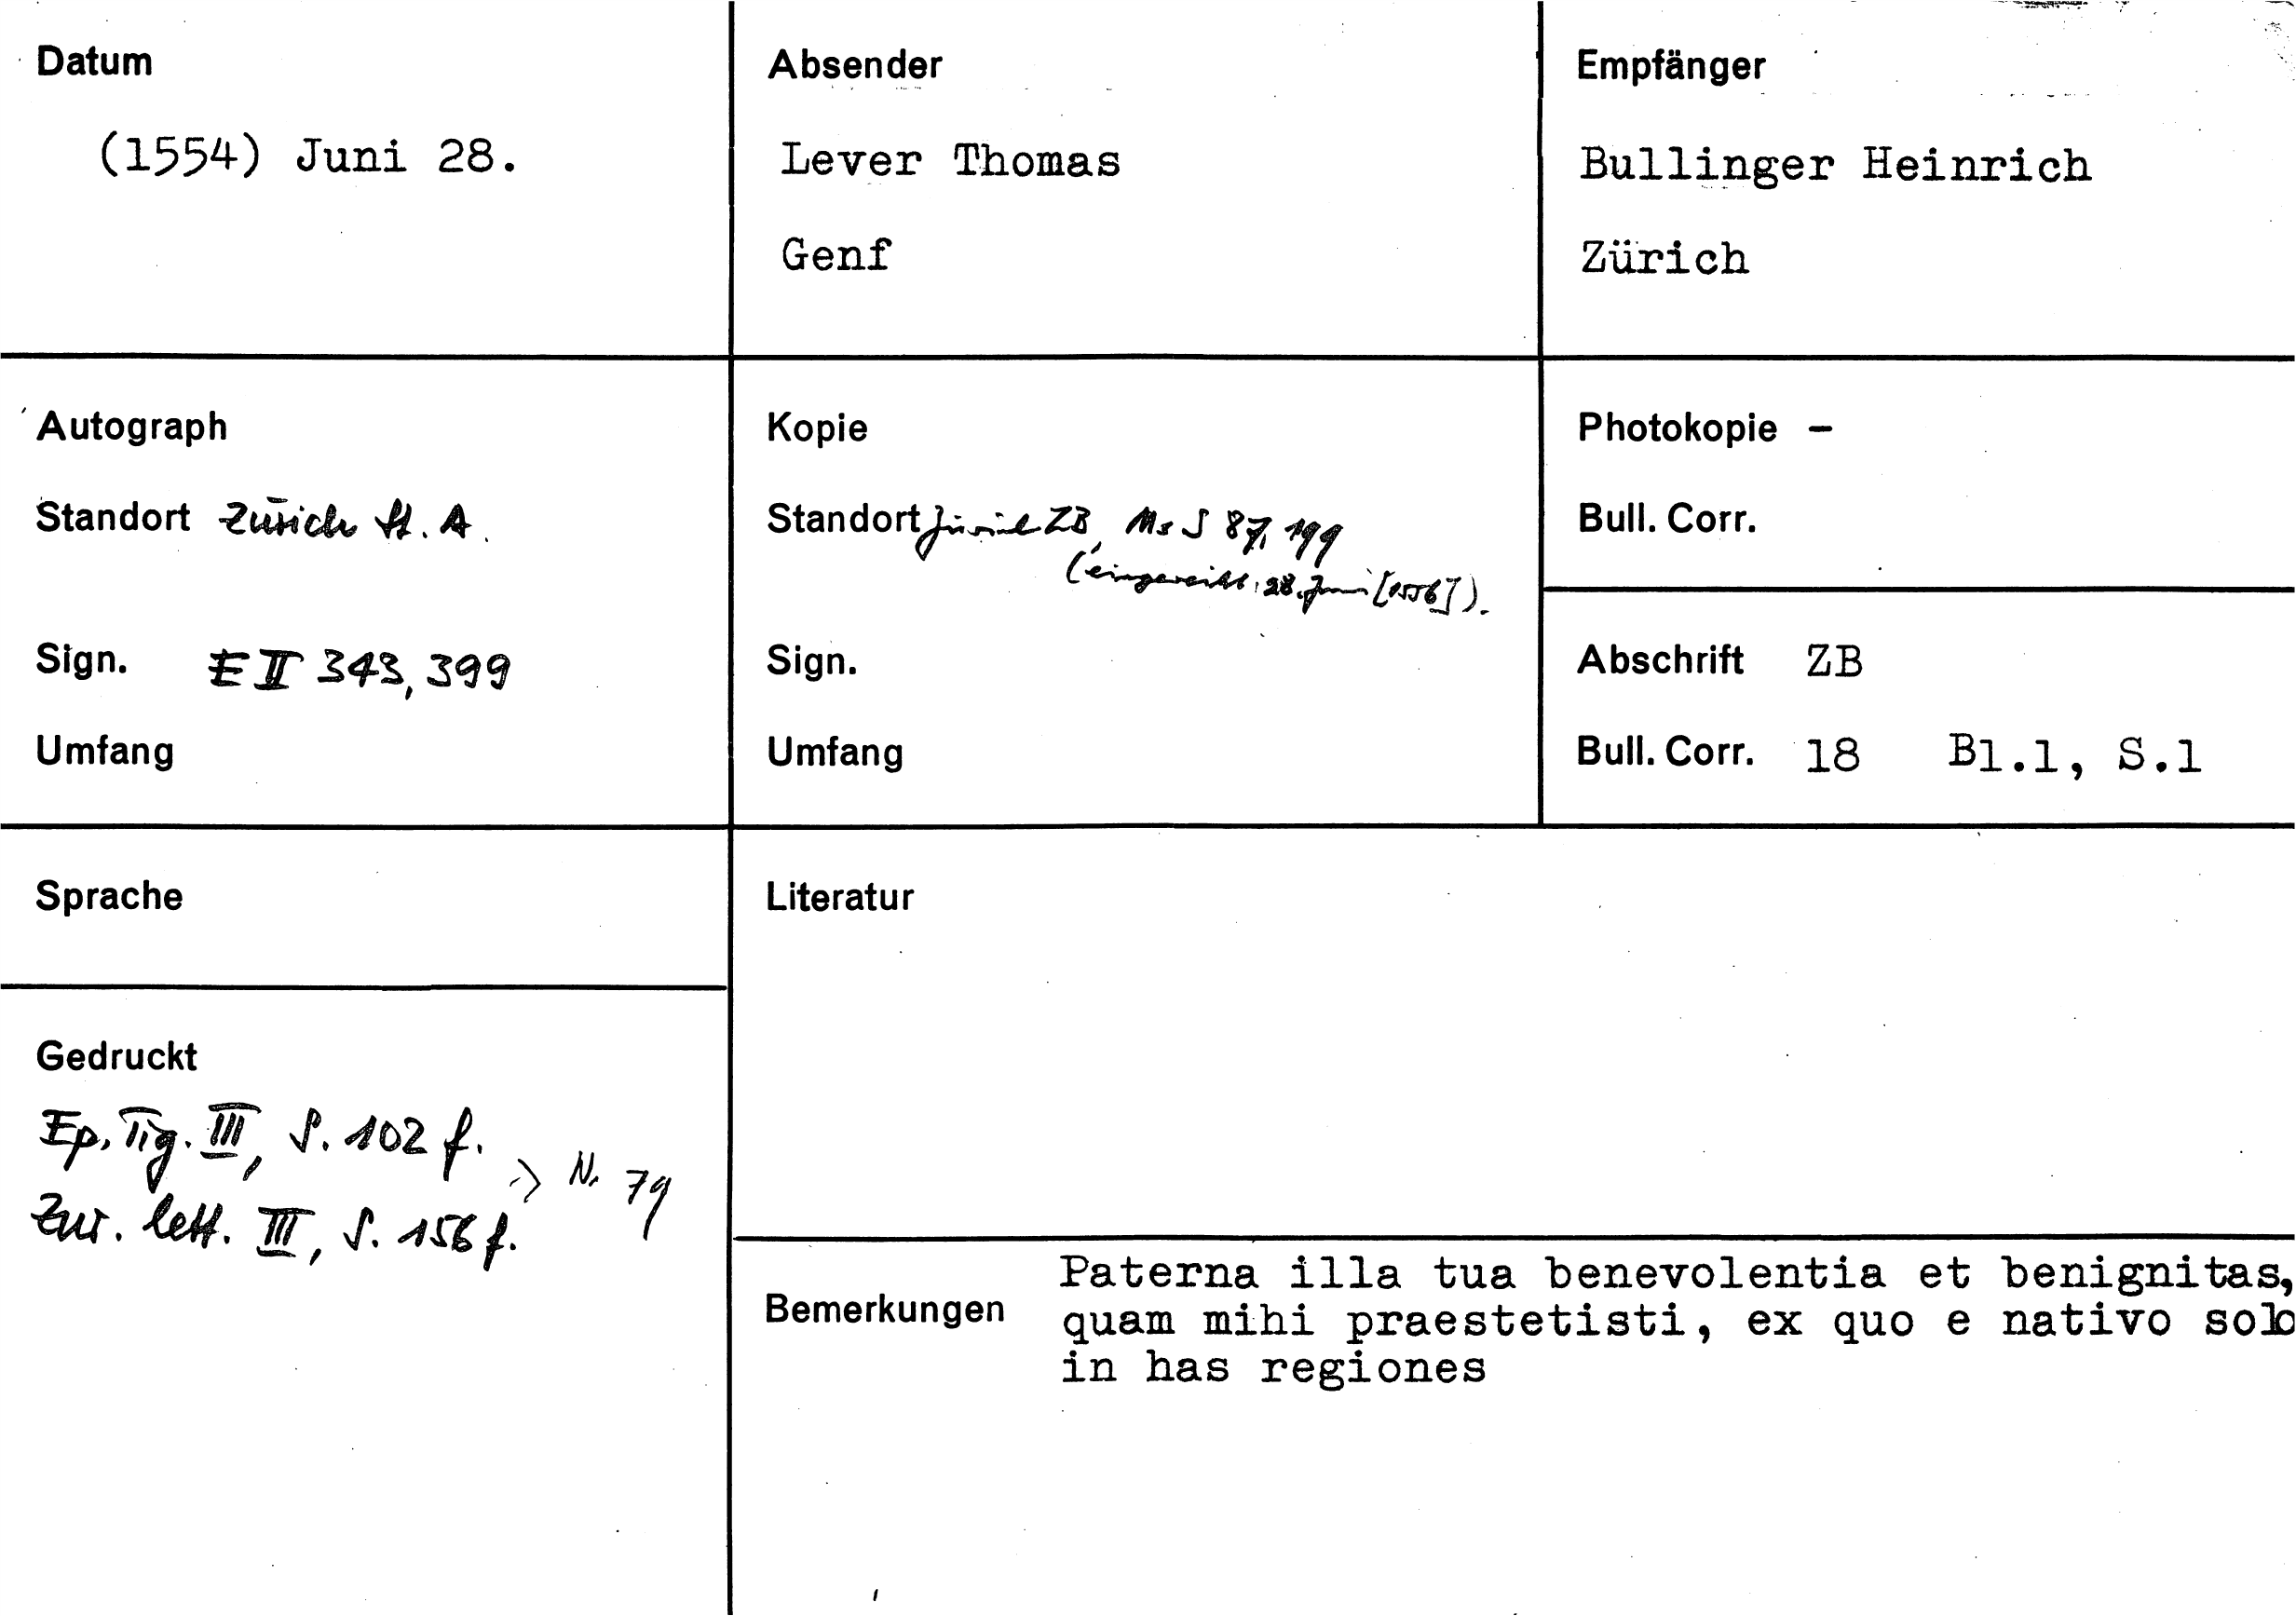 Datum
(1554) Juni 28.
Absender
Lever Thomas
Genf
Empfänger
Bullinger Heinrich
Zürich
Autograph
Standort Zürich St. A.
Sign. E II 343, 399
Umfang
Kopie
Standort Zürich ZB, Ms S 87, 199
(eingereiht: 28. Juni [1556]).
Sign.
Umfang
Photokopie –
Bull. Corr.
Abschrift ZB
Bull. Corr. 18 Bl.1, S.1
Sprache
Gedruckt
Ep. Tig. III, S. 102 f.
> N. 79
Zur. lett. III, S. 156 f.
Literatur
Bemerkungen
Paterna illa tua benevolentia et benignitas,
quam mihi praestetisti, ex quo e nativo solo
in has regiones